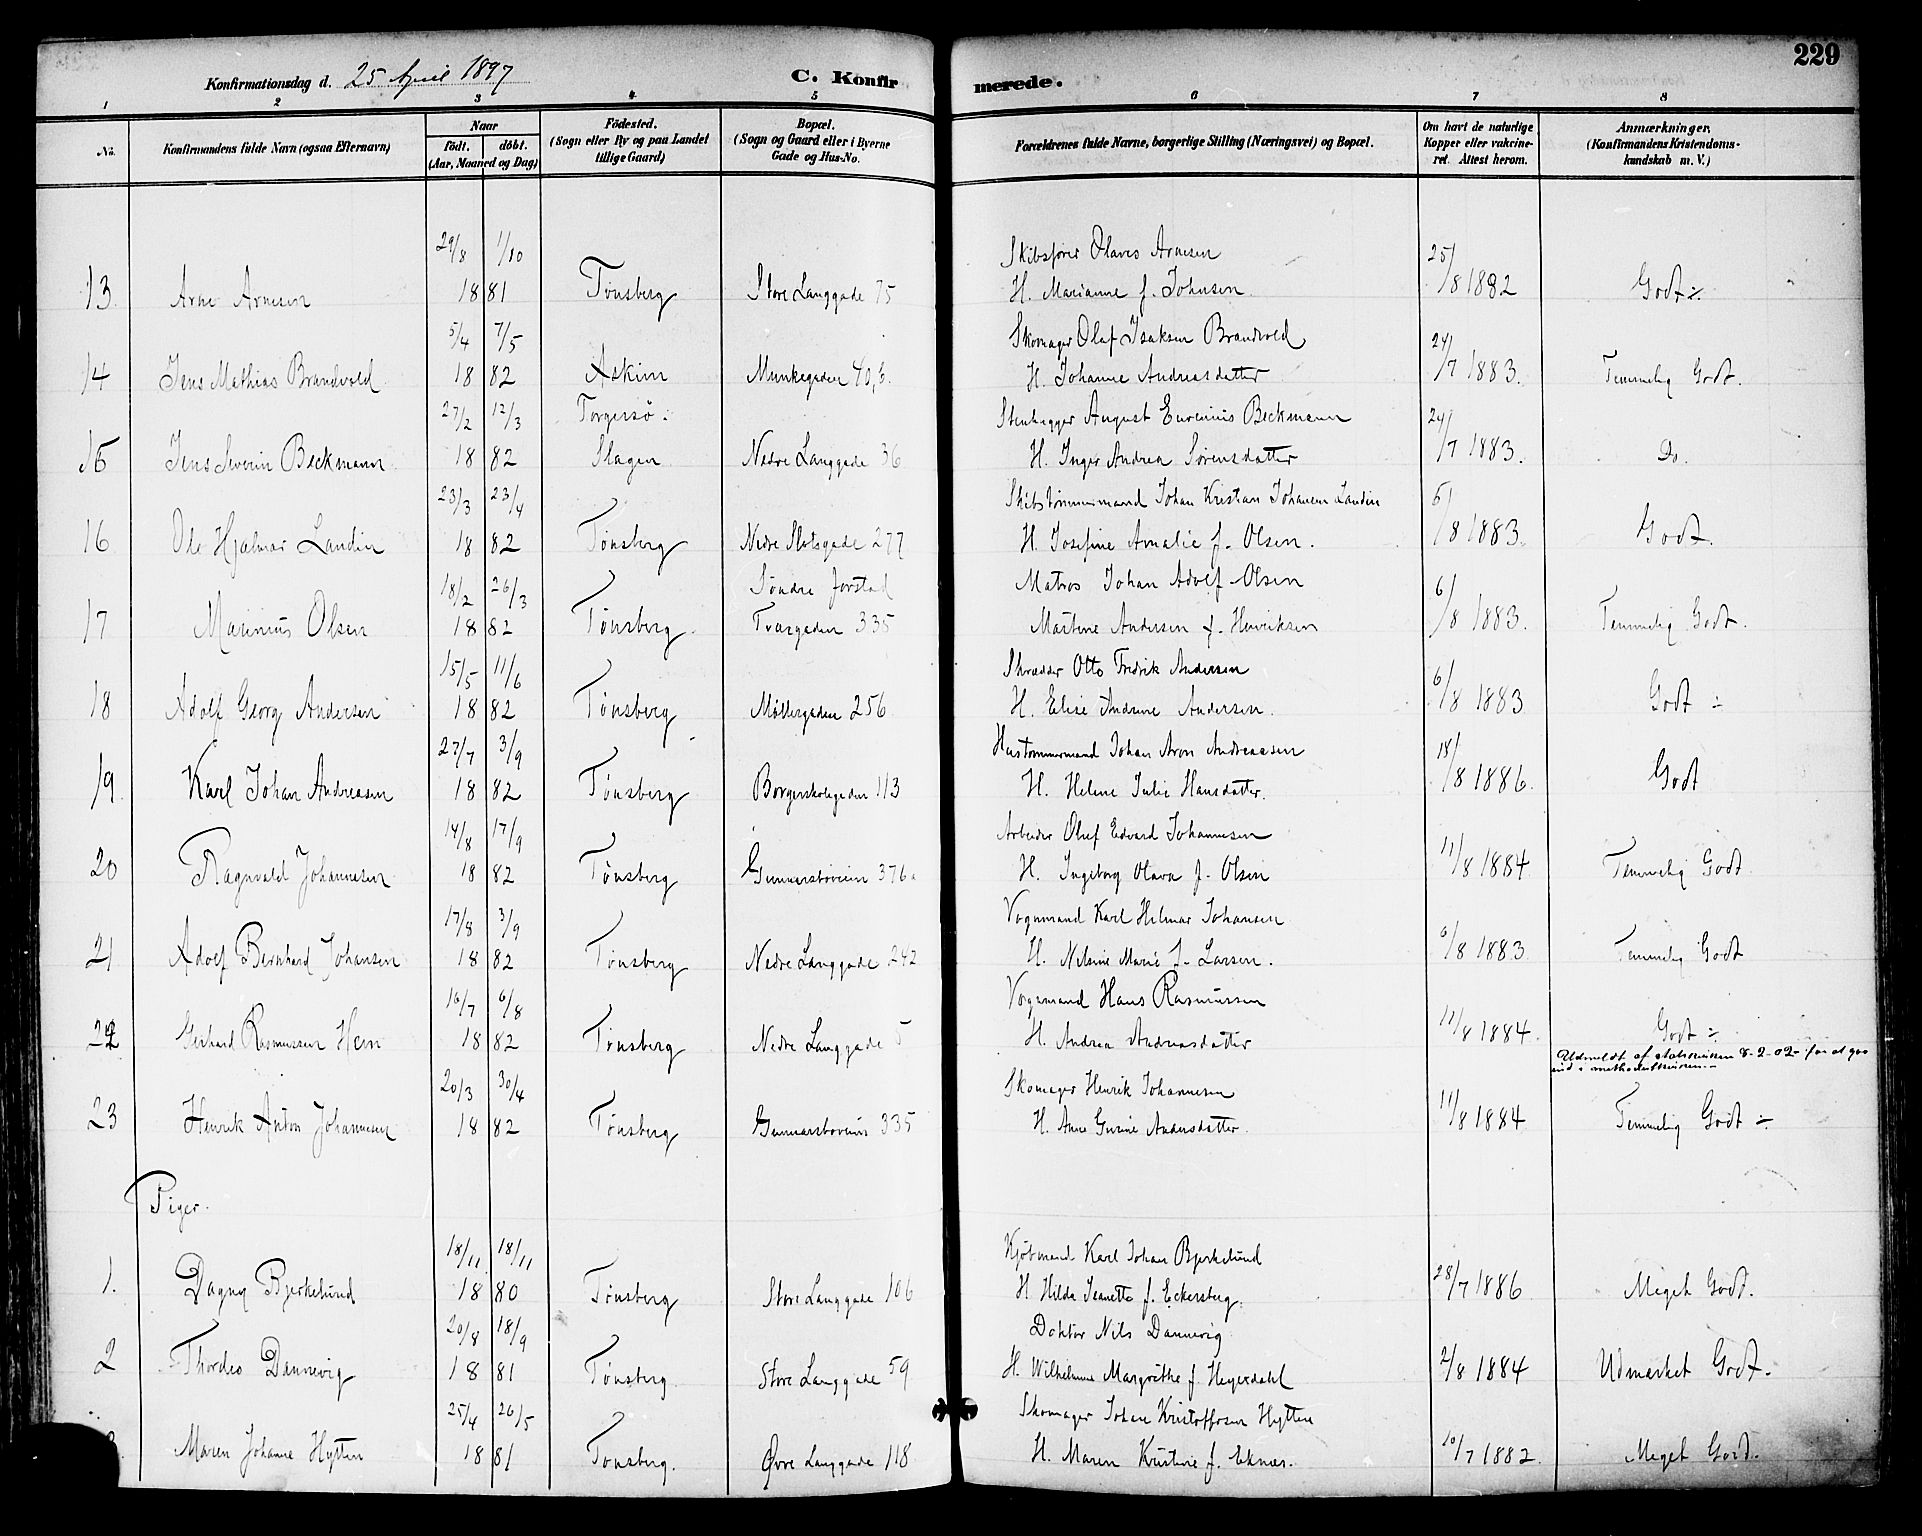 229
Konfirmationsdag d. 25 April 1897
C. Konfirmerede.
1 2 3 4 5 6 7 8
No.
Konfirmandens fulde Navn (ogsaa Efternavn)
Naar
födt. döbt.
(Aar, Maaned og Dag)
Födested.
(Sogn eller By og paa Landet
tillige Gaard)
Bopæl.
(Sogn og Gaard eller i Byerne
Gade og Hus-No.
Forældrenes fulde Navne, borgerlige Stilling (Næringsvei) og Bopæl.
Om havt de naturlige
Kopper eller vakcine-
ret. Attest herom.
Anmærkninger.
(Konfirmandens Kristendoms-
kundskab m. V.)
29/8 1/10 Skibsfører Olaves Arnesen 25/
13 Arne Arnesen 1881 Tønsberg Store Langgade 75 H. Marianne f. Johnsen /8 1882 Godt ÷
5/4 7/5 Skomager Olaf Isaksen Brandvold 24/
14 Jens Mathias Brandvold 1882 Askim Munkegaden 40,3. H. Johanne Andreasdatter /7 1883. Temmelig Godt.
27/2 12/3 Torgersö. Stenhugger August Eugenius Beckmann 24/
15 Jens Severin Beckmann 1882 Slagen Nedre Langgade 36 H. Inger Andrea Sørensdatter /7 1883. Do.
23/3 23/4 Skibstømmermand Johan Kristian Johansen Landin 5/
16 Ole Hjalmar Landin 1882 Tønsberg Nedre Slotsgade 277 H. Josefine Amalie f. Olsen. /8 1883. Godt.
18/2 26/3 Søndre forstad Matros Johan Adolf Olsen 6/
17 Marinius Olsen 1882 Tønsberg. Tvargaden 335 Martine Andersen f. Henriksen /8 1883. Temmelig Godt.
15/5 11/6 Skrædder Otto Fredrik Andersen 6/
18 Adolf Georg Andersen 1882 Tønsberg Møllergaden 256 H. Elise Andrine Andersen. /8 1883 Godt ÷
27/7 3/9 Hustømmermand Johan Aron Andreassen 18/
19. Karl Johan Andreasen 1882 Tønsberg Borgerskolegaden 113 H. Helene Julie Hansdatter. /8 1886. Godt
14/8 17/9 Arbeider Oluf Edvard Johannesen
20 Ragnvald Johannesen 1882 Tønsberg Gunnersboveien 376a H. Ingeborg Olava f. Olsen 11/8 1884 Temmelig Godt
17/8 3/9 Vognmand Karl Hilmar Johansen
21 Adolf Bernhard Johansen 1882 Tønsberg Nedre Langgade 242 H. Nilsine Marie f. Larsen. 6/8 1883 Temmelig Godt
16/7 6/8 Vognmand Hans Rasmussen
22 Gerhard Rasmussen Hem 1882 Tønsberg Nedre Langgade 5 H. Andrea Andreasdatter 11/8 1884. Godt ÷
Udmeldt af statskirken 8-2-02 for at gaa
ind i methodistkirken.
20/3 30/4 Skomager Henrik Johannesen
23 Henrik Anton Johannesen 1882 Tønsberg Gunnarsboveien 335 H. Anne Gurine Andersdatter. 11/8 1884 Temmelig Godt ÷
Piger.
18/11 18/11 Kjøbmand Karl Johan Bjerkelund
1. Dagny Bjerkelund 1880 Tønsberg Store Langgade 106 H. Hilda Jeanette f. Eckersberg. 28/7 1886 Meget Godt.
20/8 18/9 Doktor Nils Dannevig
2 Thordis Dannevig 1881 Tønsberg Store Langgade 59 H. Wilhelmine Margrethe f. Heyerdahl 2/8 1884 Udmærket Godt.
25/4 26/5 Skomager Johan Kristoffersen Hytten
Maren Johanne Hytten 1881 Tønsberg. Øvre Langgade 118 H. Maren Kristine f. Eknæs. 10/7 1882. Meget Godt.